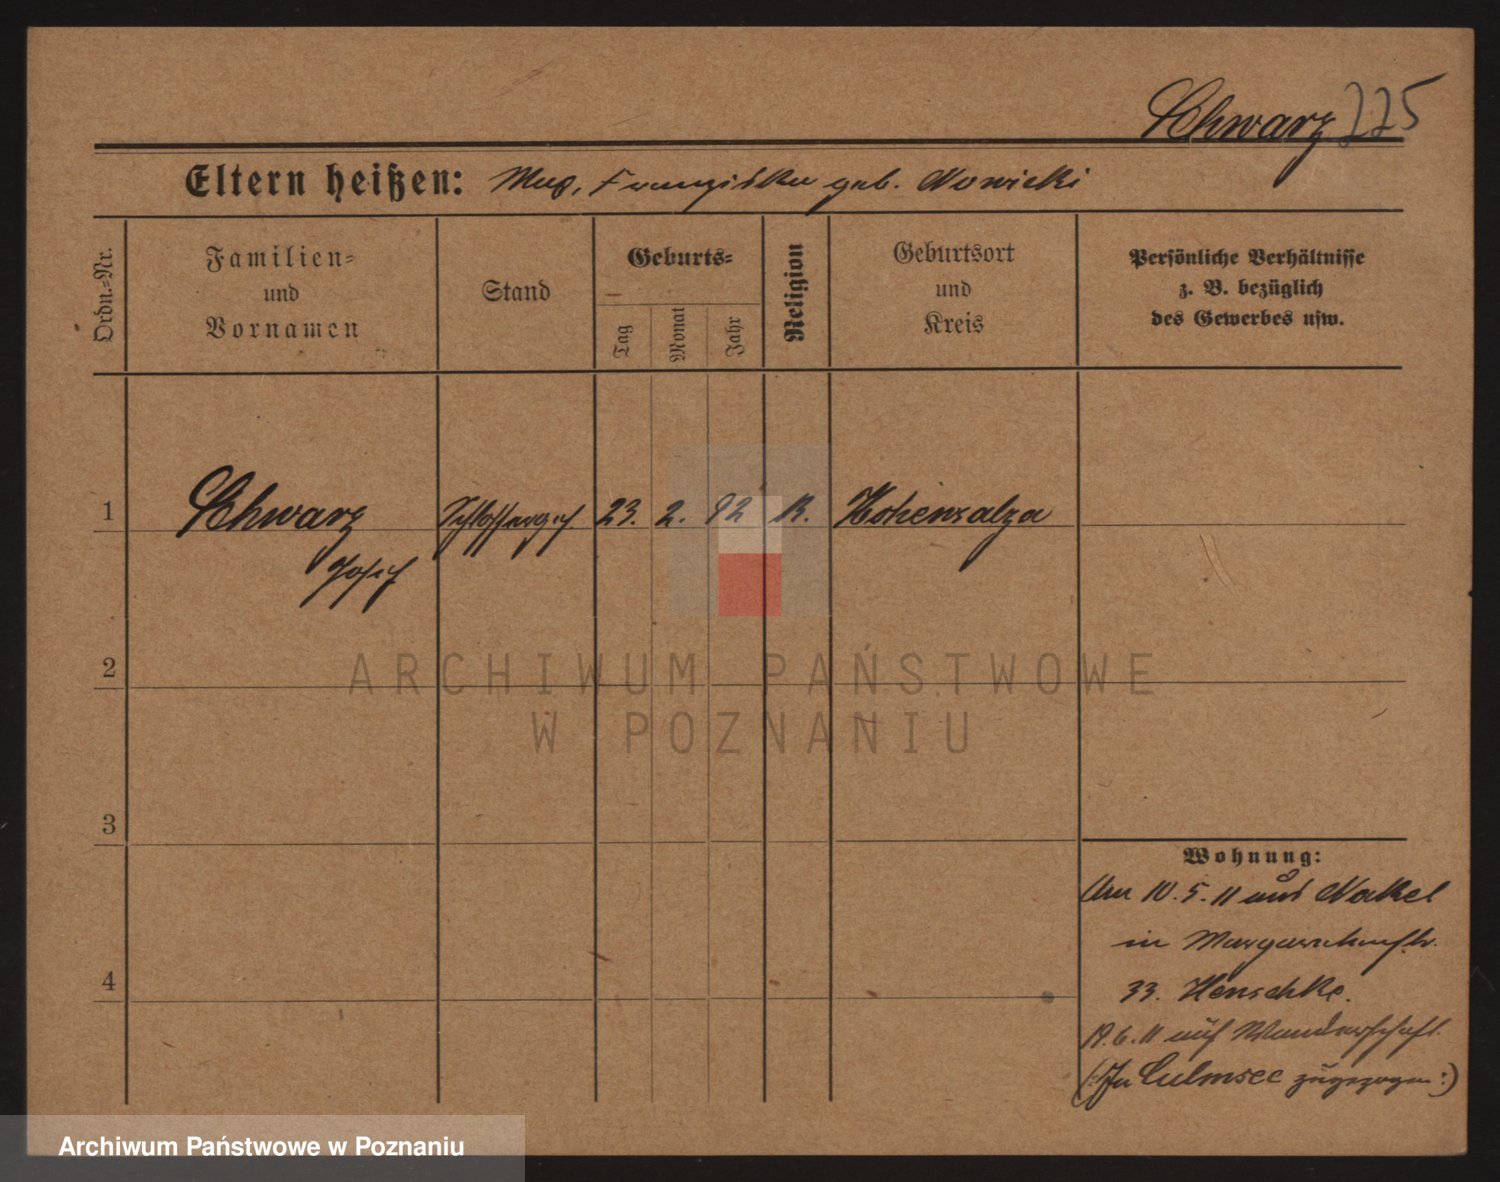 Schwarz 775
Eltern heißen: Max, Franziska geb. Nowicki
Ordn.-Nr.
Familien-
und
Vornamen
Stand
Geburts-
Tag
Monat
Jahr
Religion
Geburtsort
und
Kreis
Persönliche Verhältnisse
z. B. bezüglich
des Gewerbes usw.
1 Schwarz Schlosserges. 23. 2. 92 K. Hohensalza
Josef
2
ARCHIWUM PAŃSTWOWE
W POZNANIU
3
4
Wohnung:
10.5.11 aus Nakel
in
33. Henschke.
19.6.11 auf Wanderschaft.
(:In Culmsee zugezogen:)
Archiwum Państwowe w Poznaniu